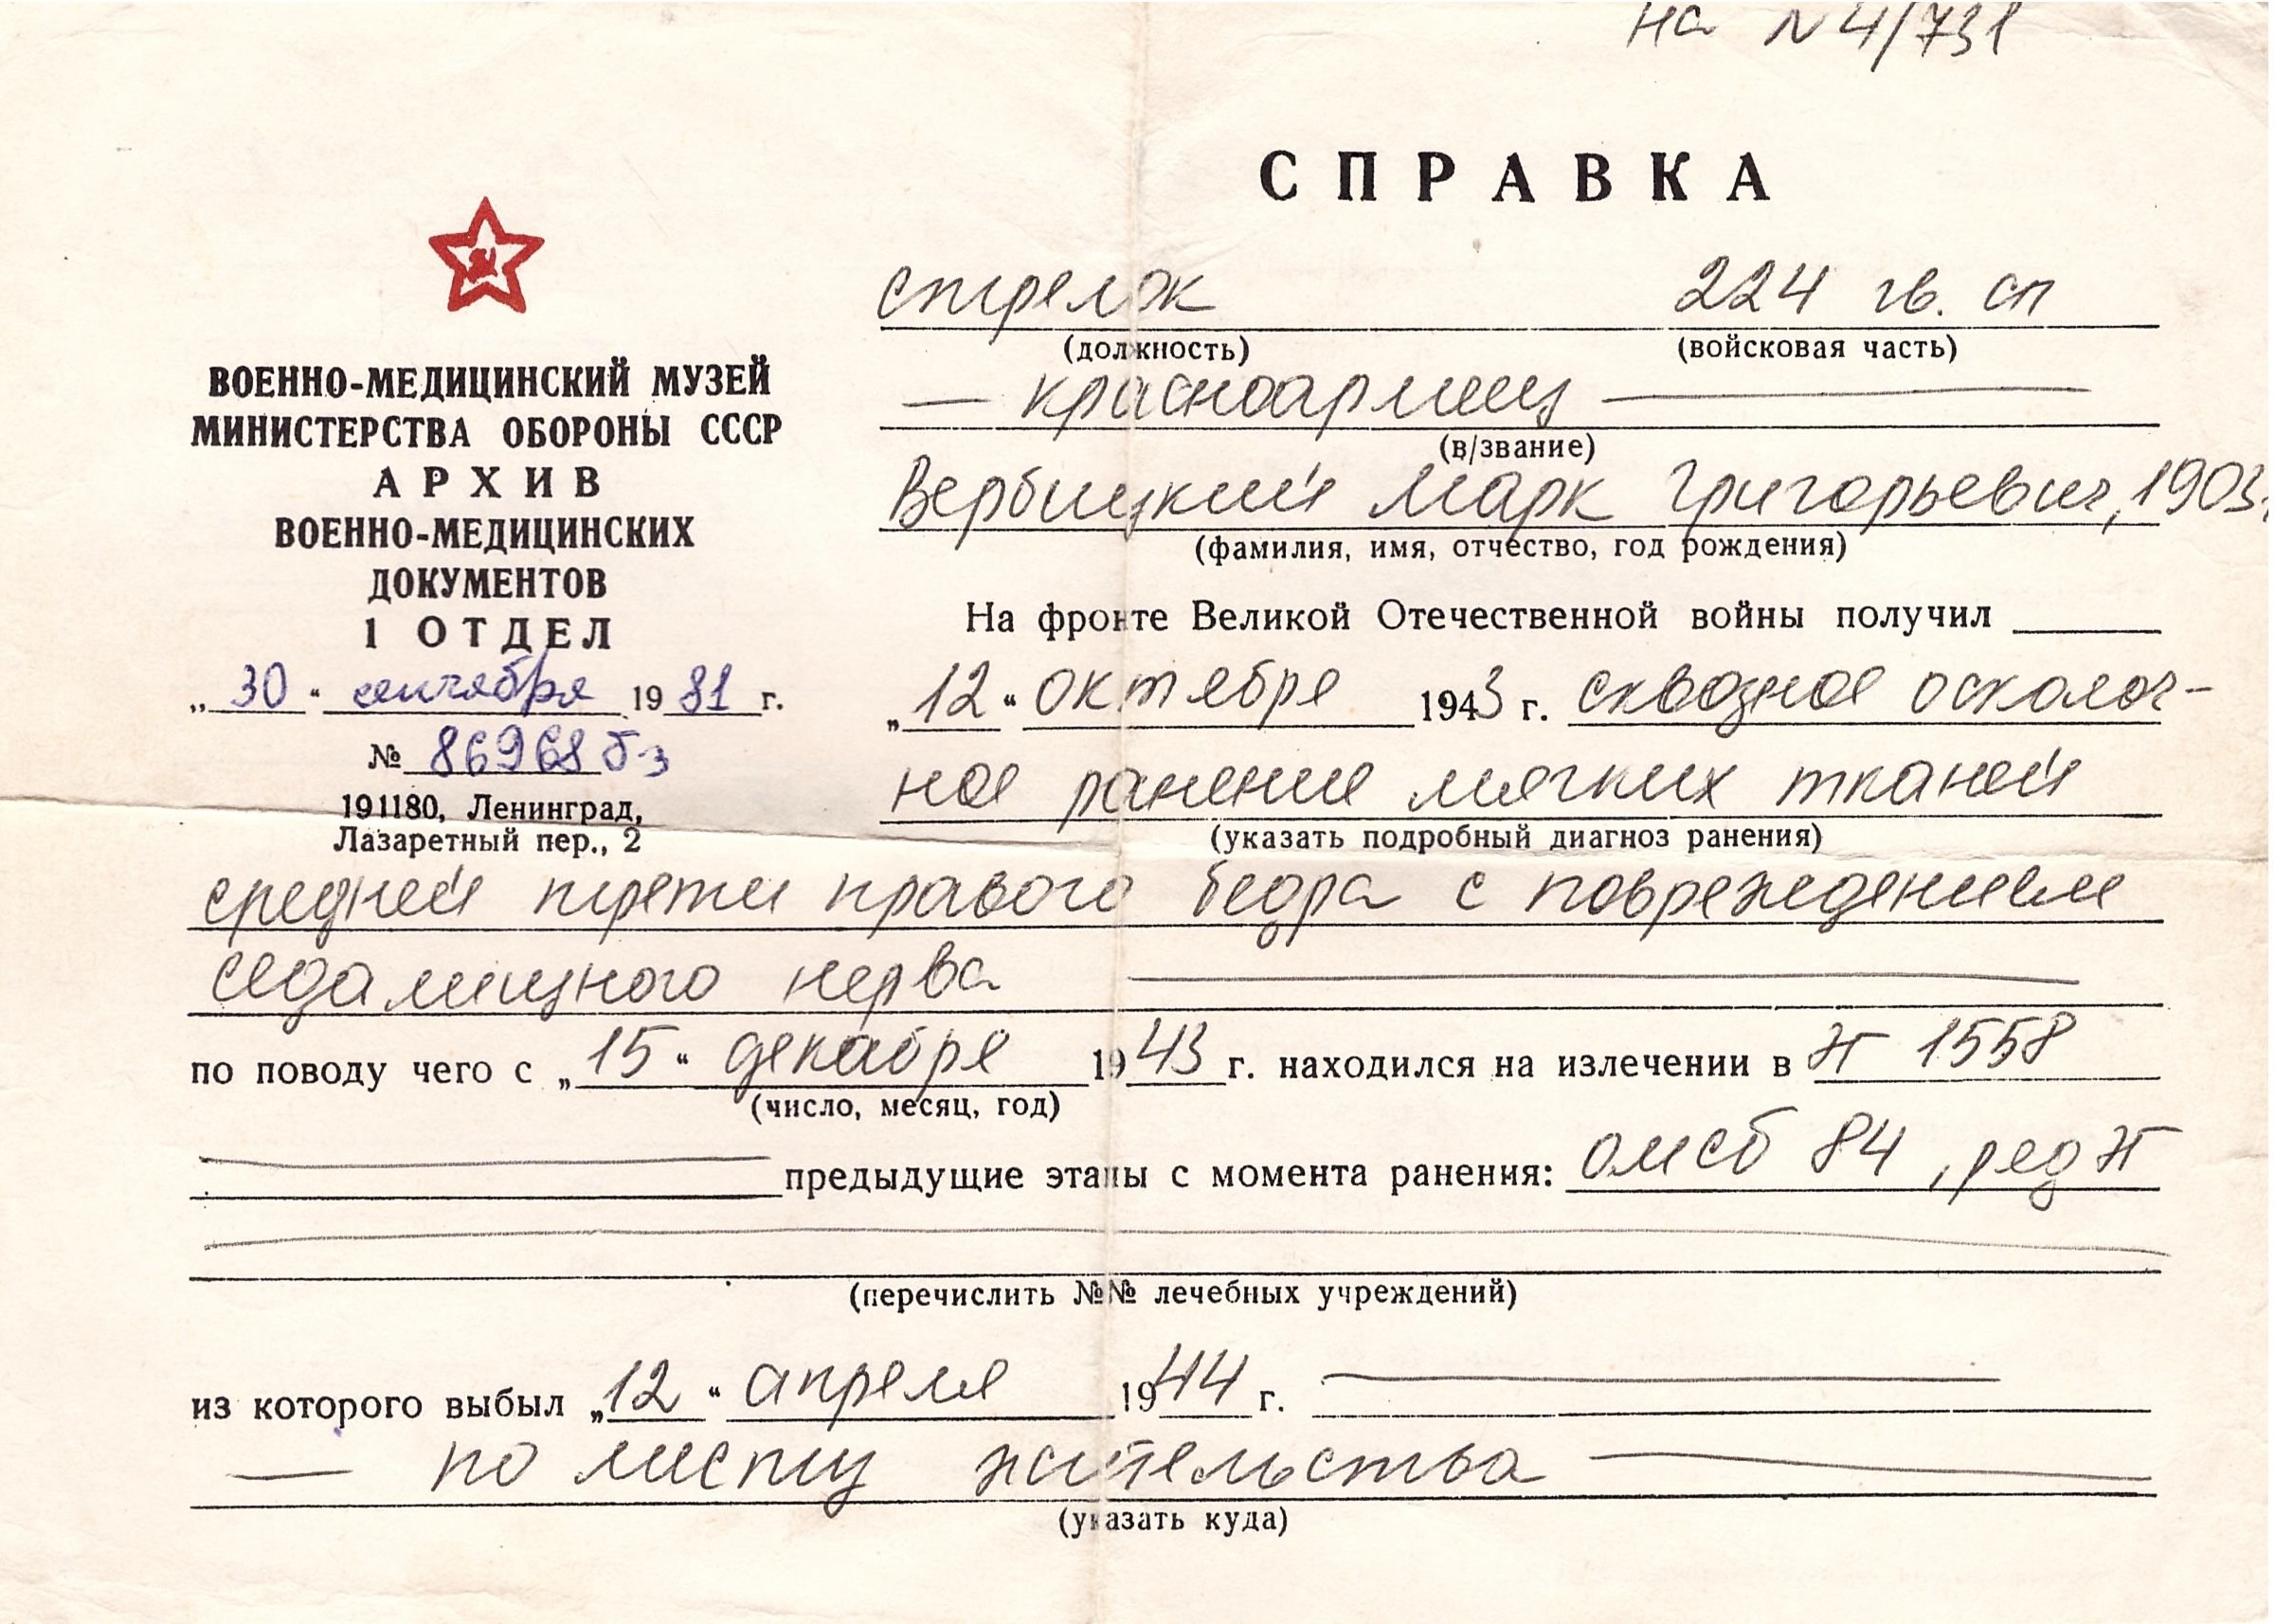 на № 4/731
СПРАВКА
ВОЕННО-МЕДИЦИНСКИЙ МУЗЕЙ
МИНИСТЕРСТВА ОБОРОНЫ СССР
АРХИВ
ВОЕННО-МЕДИЦИНСКИХ
ДОКУМЕНТОВ
1 ОТДЕЛ
„30“ сентября 1981 г.
№ 86968 бз
191180, Ленинград,
Лазаретный пер., 2
стрелок 224 гв. сп
(должность) (войсковая часть)
— красноармеец —
(в/звание)
Вербицкий Марк Григорьевич, 1903г.
(фамилия, имя, отчество, год рождения)
На фронте Великой Отечественной войны получил
„12“ октября 1943 г. сквозное осколоч-
ное ранение мягких тканей
(указать подробный диагноз ранения)
средней трети правого бедра с повреждением
седалищного нерва
по поводу чего с „15“ декабря 1943 г. находился на излечении в ЭГ 1558
(число, месяц, год)
предыдущие этапы с момента ранения: омсб 84, ред ЭГ
(перечислить №№ лечебных учреждений)
из которого выбыл „12“ апреля 1944 г. —
— по месту жительства —
(указать куда)